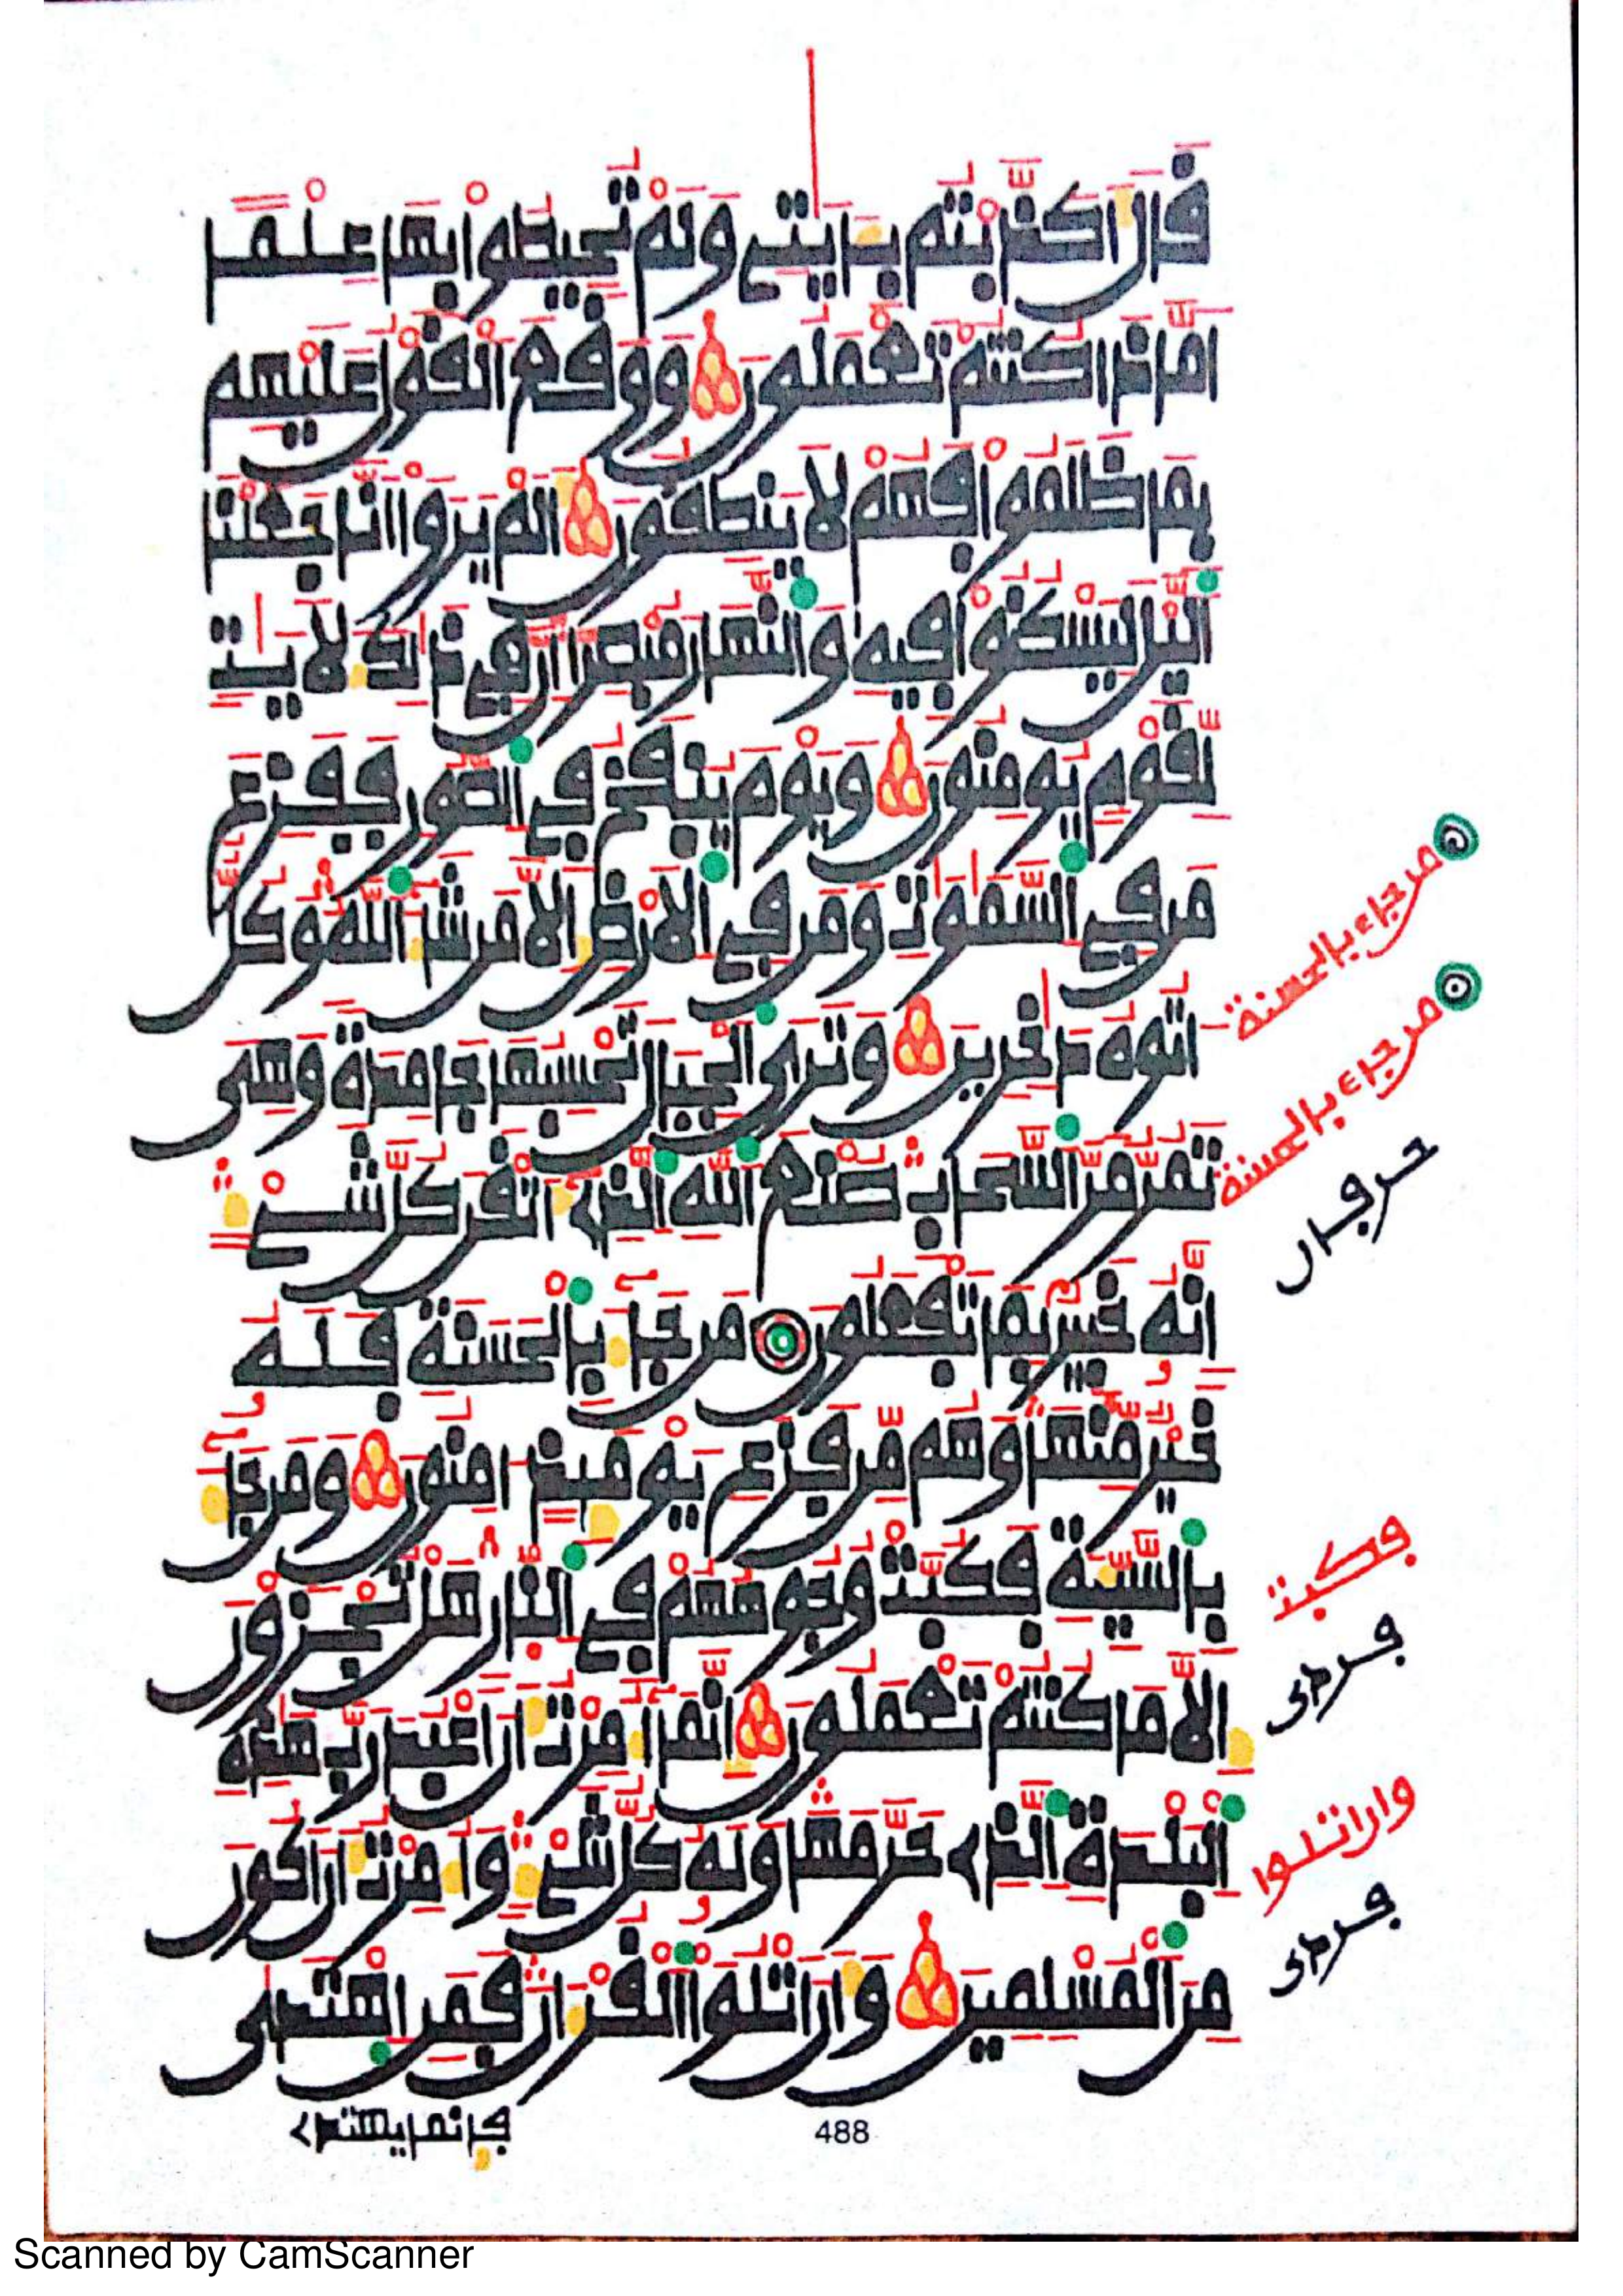 قَالَ أَكَذَّبْتُم بِـَٔايَٰتِى وَلَمْ تُحِيطُوا۟ بِهَا عِلْمًا
أَمَّاذَا كُنتُمْ تَعْمَلُونَ وَوَقَعَ ٱلْقَوْلُ عَلَيْهِم
بِمَا ظَلَمُوا۟ فَهُمْ لَا يَنطِقُونَ أَلَمْ يَرَوْا۟ أَنَّا جَعَلْنَا
ٱلَّيْلَ لِيَسْكُنُوا۟ فِيهِ وَٱلنَّهَارَ مُبْصِرًا إِنَّ فِى ذَٰلِكَ لَأَيَٰتٍ
لِّقَوْمٍ يُومِنُونَ وَيَوْمَ يُنفَخُ فِى ٱلصُّورِ فَفَزِعَ
مَن فِى ٱلسَّمَٰوَٰتِ وَمَن فِى ٱلْأَرْضِ إِلَّا مَن شَآءَ ٱللَّهُ وَكُلٌّ
ءَاتُوهُ دَٰخِرِينَ وَتَرَى ٱلْجِبَالَ تَحْسِبُهَا جَامِدَةً وَهِىَ
تَمُرُّ مَرَّ ٱلسَّحَابِ صُنْعَ ٱللَّهِ ٱلَّذِى أَتْقَنَ كُلَّ شَىْءٍ
إِنَّهُ خَبِيرٌۢ بِمَا تَفْعَلُونَ مَن جَآءَ بِٱلْحَسَنَةِ فَلَهُ
خَيْرٌ مِّنْهَا وَهُم مِّن فَزَعِ يَوْمَئِذٍ ءَامِنُونَ وَمَن جَآءَ
بِٱلسَّيِّئَةِ فَكُبَّتْ وُجُوهُهُمْ فِى ٱلنَّارِ هَلْ تُجْزَوْنَ
إِلَّا مَا كُنتُمْ تَعْمَلُونَ إِنَّمَآ أُمِرْتُ أَنْ أَعْبُدَ رَبَّ هَٰذِهِ
ٱلْبَلْدَةِ ٱلَّذِى حَرَّمَهَا وَلَهُ كُلُّ شَىْءٍ وَأُمِرْتُ أَنْ أَكُونَ
مِنَ ٱلْمُسْلِمِينَ وَأَنْ أَتْلُوَا۟ ٱلْقُرْءَانَ فَمَنِ ٱهْتَدَىٰ
فإنما يهتدى
488
من جاء بالحسنة
من جاء بالحسنة
حرفان
فكبت
فردى
وان اتلوا
فردى
Scanned by CamScanner